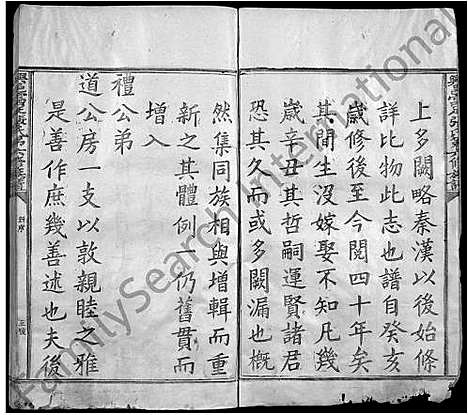 上多闕略秦漢以後始條
詳比此志也譜自癸亥
歲修後至今閱四十年矣
其間生沒嫁娶不知凡幾
歲辛丑其哲嗣運賢諸君
恐其久而或多闕漏也概
然集同族相與增輯而重
新之其體例一仍舊貫而
增入
禮公弟
道公房一支以敦親睦之雅
是善作庶幾善述也夫後
FamilySearch International